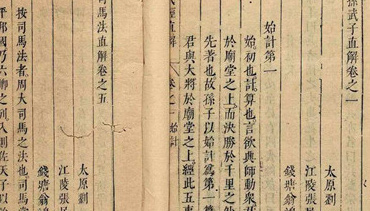 孫武子直解卷之一
太原劉
江陵張居
錢塘翁
始計第一
始初也計筭也言欲興師動眾君
於廟堂之上而決勝於千里之外
先著也故孫子以始計為第一篇
君與大將於廟堂之上經此五事
直解 卷之一 始計
司馬法直解卷之五
太原劉
江陵張居
錢塘翁
按司馬法者周大司馬之法也司馬
平邦國乃六卿之列入則佐天子以